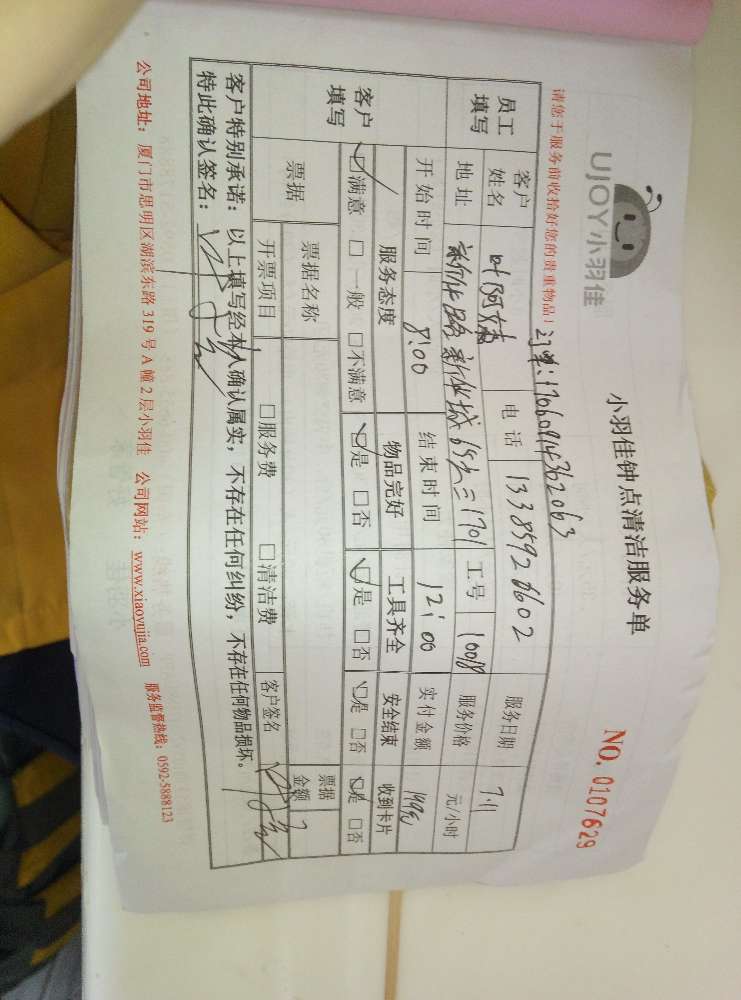 UJOY小羽佳
小羽佳钟点清洁服务单
NO. 0107629
请您于服务前收拾好您的贵重物品！
员工填写
客户姓名
电话 13385926602
服务日期 7.11
地址
工号 10018
服务价格 元/小时
开始时间 8:00
结束时间 12:00
实付金额
客户填写
服务态度 物品完好 工具齐全 安全结束 收到卡片
☑满意 □一般 □不满意 ☑是 □否 ☑是 □否 ☑是 □否 ☑是 □否
票据
票据名称
票据金额
开票项目 □服务费 □清洁费 客户签名
客户特别承诺：以上填写经本人确认属实，不存在任何纠纷，不存在任何物品损坏。
特此确认签名：
公司地址：厦门市思明区湖滨东路 319 号 A 幢 2 层小羽佳 公司网站：www.xiaoyujia.com 服务监督热线：0592-5888123